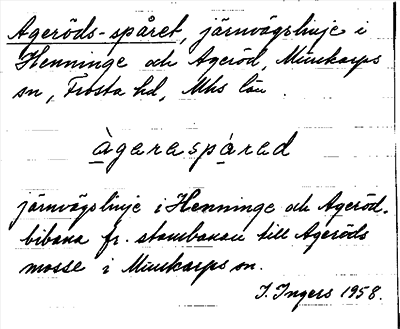 Ageröds-spåret, järnvägslinje i
Henninge och Ageröd, Munkarps
sn, Frosta hd, Mhs län.
àgerespåred
järnvägslinje i Henninge och Ageröd.
bibana fr. stambanan till Ageröds
mosse i Munkarps sn.
I. Ingers 1958.